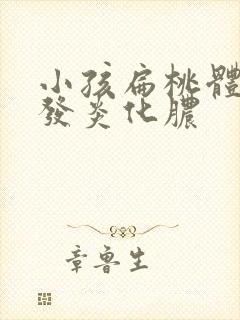 小孩扁桃體
發炎化膿
章魯生